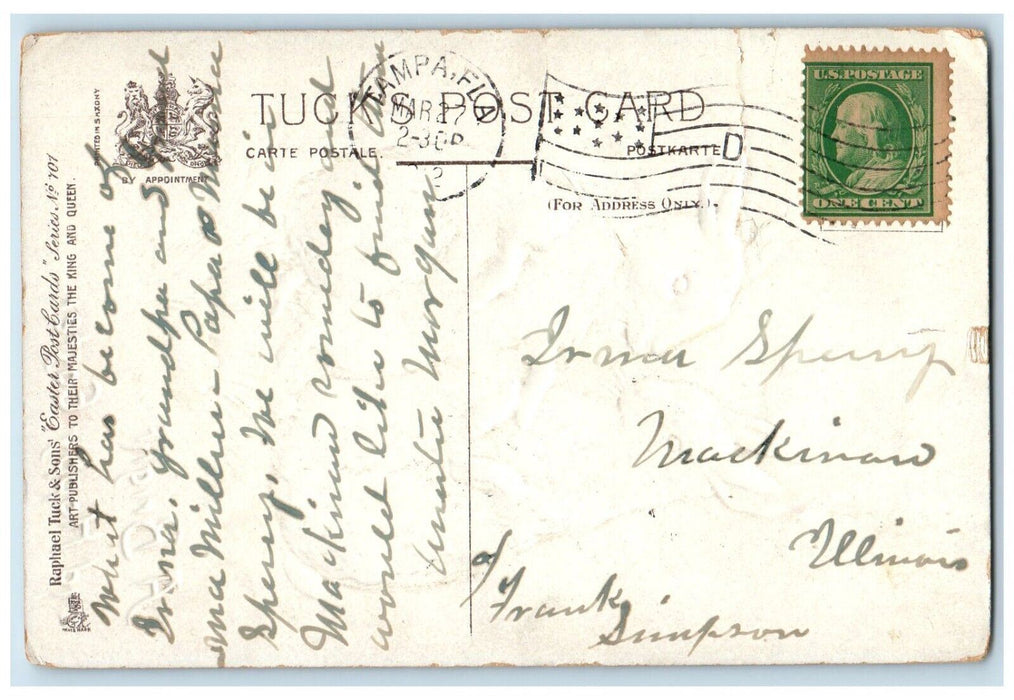 Raphael Tuck & Sons' "Easter Post Cards" Series No 701
ART PUBLISHERS TO THEIR MAJESTIES THE KING AND QUEEN.
PRINTED IN SAXONY
BY APPOINTMENT
TUCK'S POST CARD
CARTE POSTALE.
POSTKARTE
(FOR ADDRESS ONLY.)
TAMPA, FLA
MAR 27
2-30P
D
U.S. POSTAGE
ONE CENT
What has become of
Irma, grandpa and
ma Miller - Papa & Mama
Sperry. We will be in
Mackinaw monday and
would like to find out
Auntie Morgan
Irma Sperry
Mackinaw
Illinois
c/
Frank
Simpson